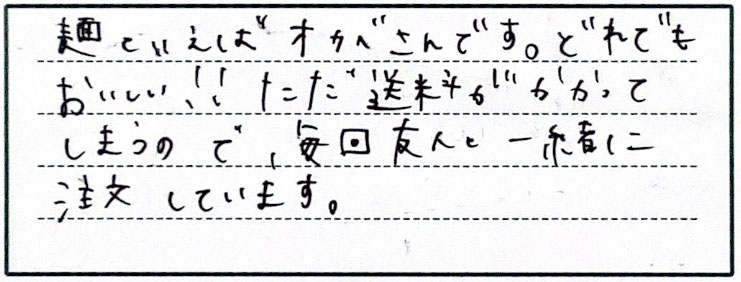 麺といえばオカベさんです。どれでも
おいしい!! ただ送料がかかって
しまうので、毎回友人と一緒に
注文しています。